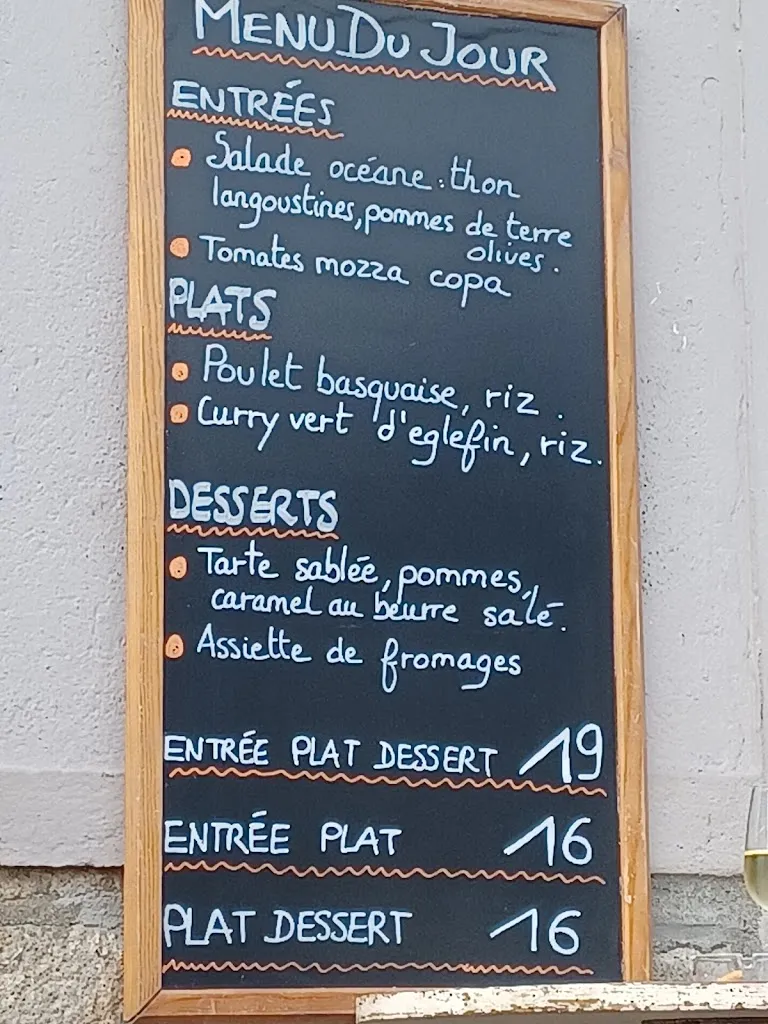 MENU DU JOUR
ENTRÉES
Salade océane : thon
langoustines, pommes de terre
olives.
Tomates mozza copa
PLATS
Poulet basquaise, riz.
Curry vert d'eglefin, riz.
DESSERTS
Tarte sablée, pommes,
caramel au beurre salé.
Assiette de fromages
ENTRÉE PLAT DESSERT 19
ENTRÉE PLAT 16
PLAT DESSERT 16